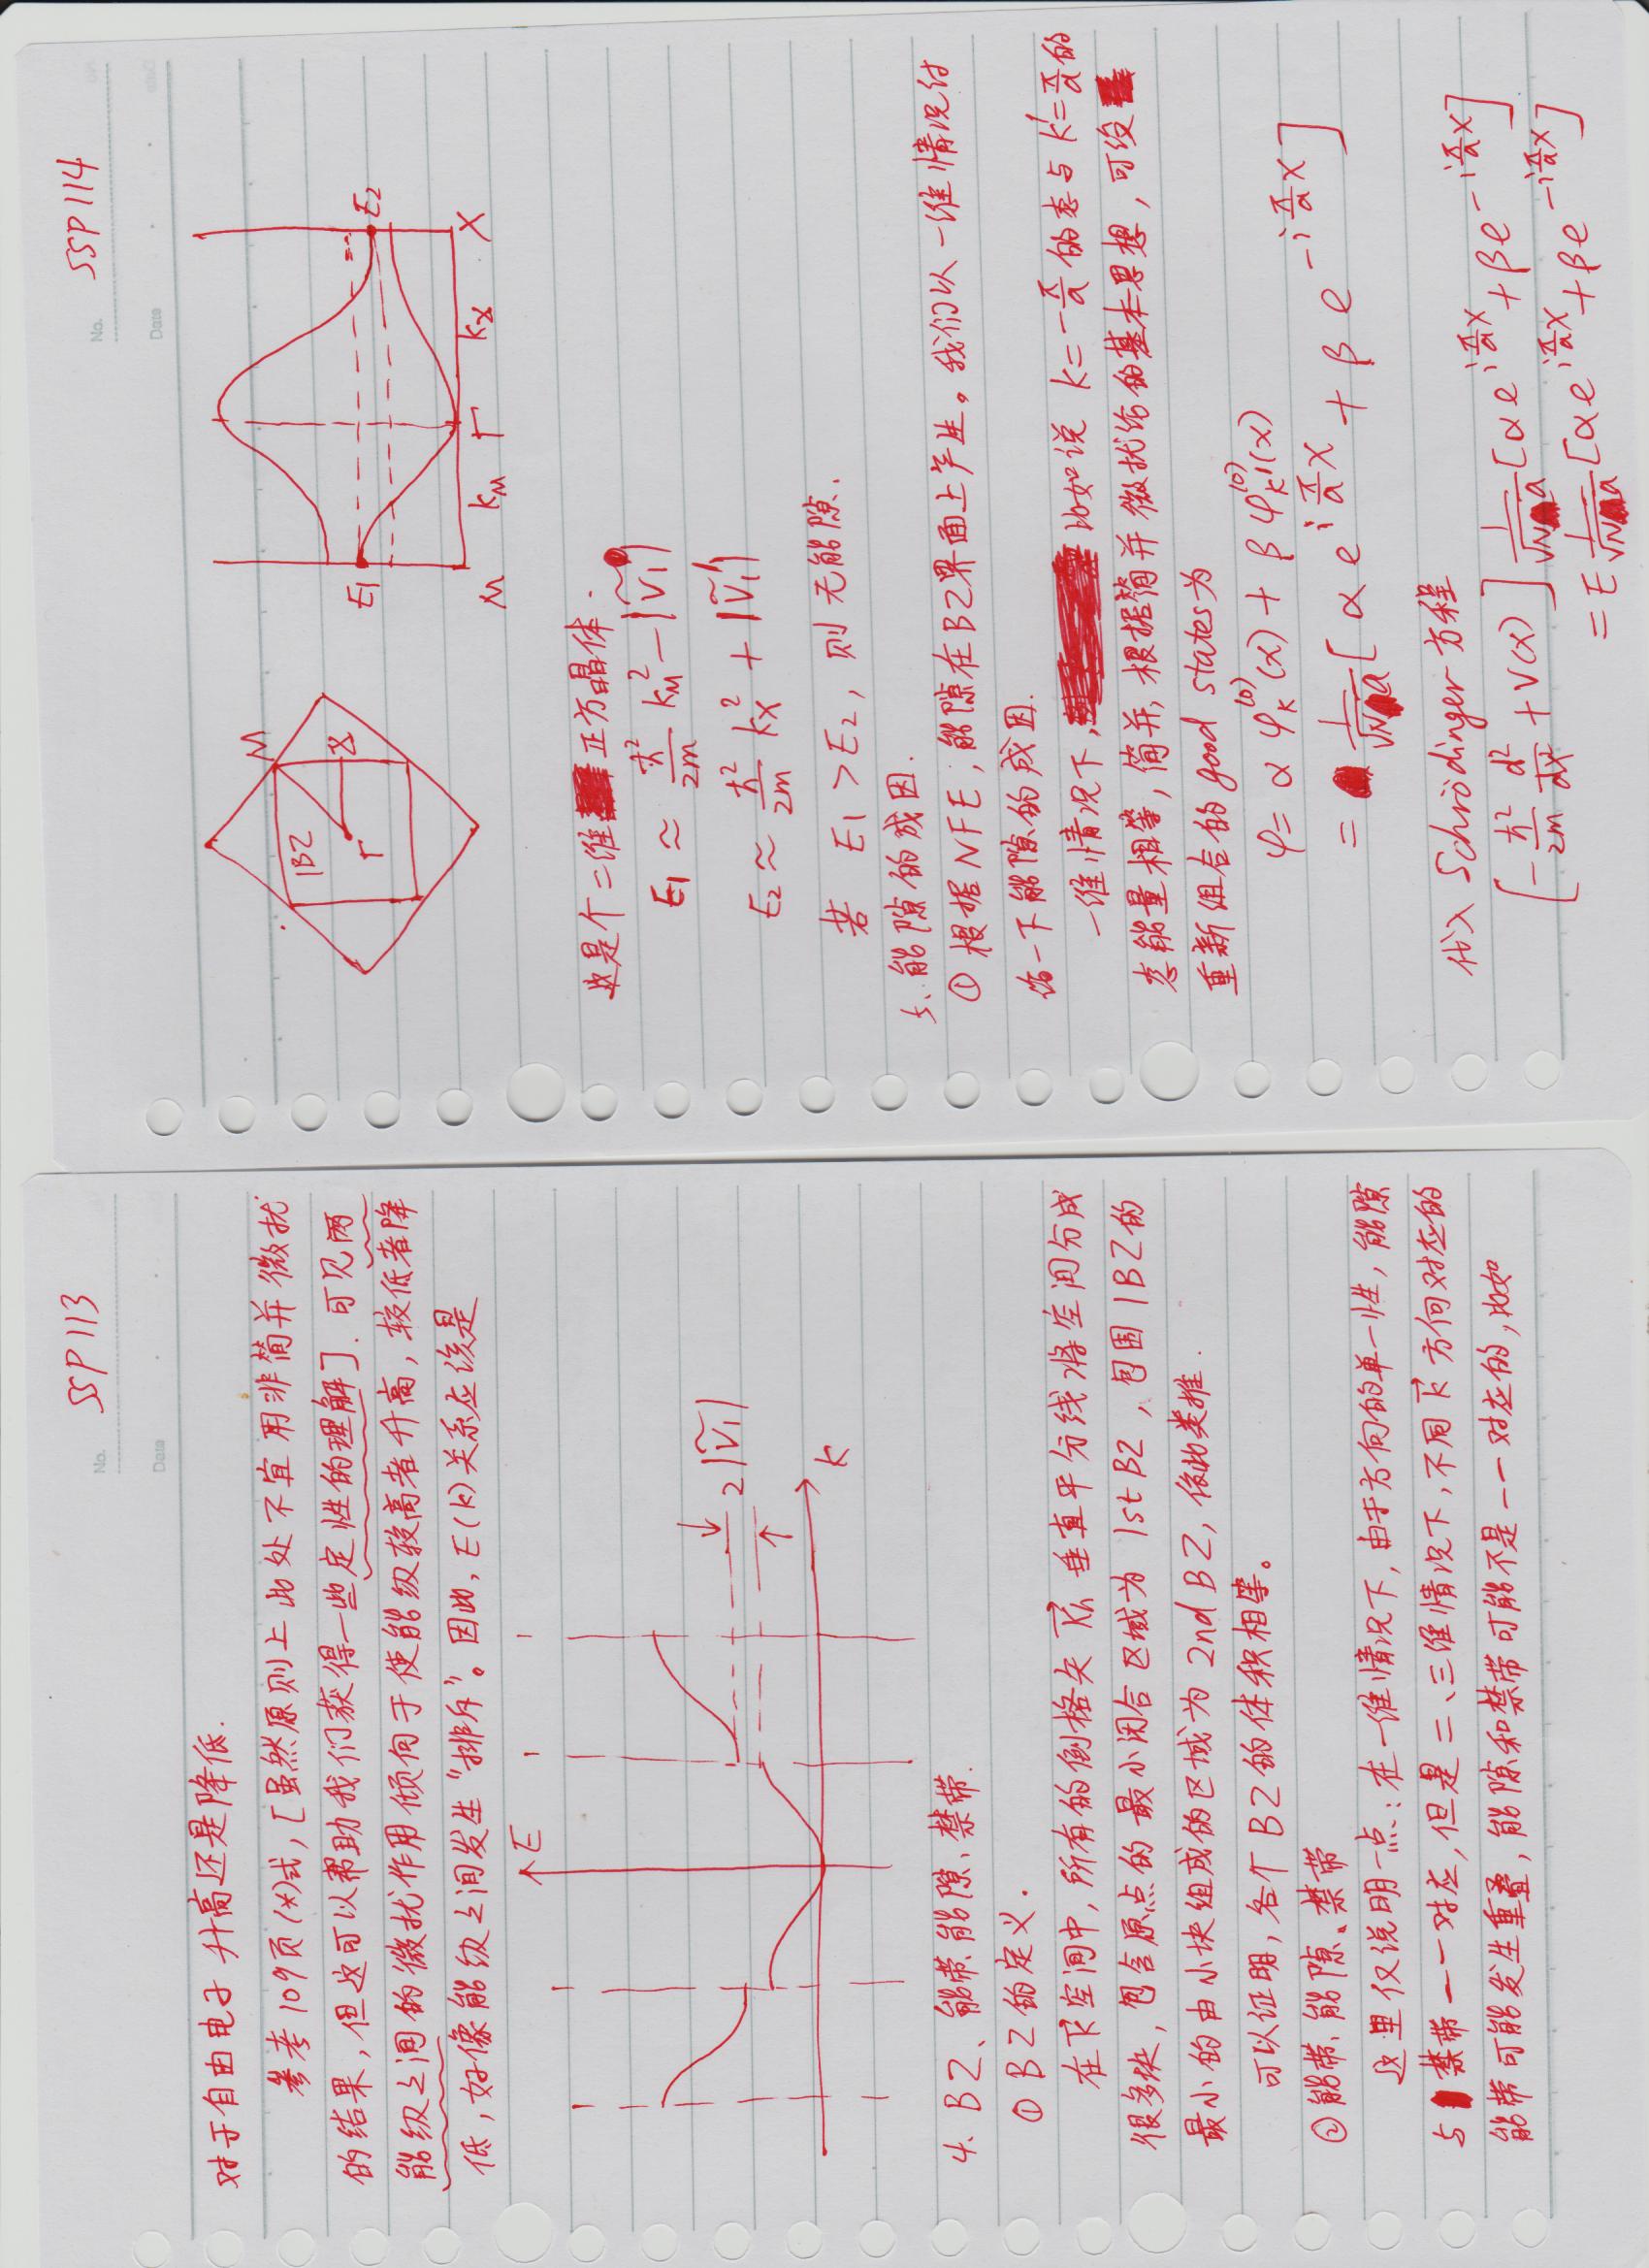 No. SSP 113
Date
对于自由电子 升高还是降低.
参考109页(*)式,[虽然原则上此处不宜用非简并微扰
的结果,但这可以帮助我们获得一些定性的理解]. 可见两
能级之间的微扰作用倾向于使能级较高者升高,较低者降
低,好像能级之间发生“排斥”。因此,E(k)关系应该是
E
2|Ṽ₁|
k
4、BZ、能带、能隙、禁带.
① BZ的定义.
在k⃗空间中,所有的倒格矢 K⃗ₙ 垂直平分线将空间分成
很多块,包含原点的最小闭合区域为 1st BZ,包围1BZ的
最小的由小块组成的区域为 2nd BZ,依此类推.
可以证明,各个BZ的体积相等。
②能带、能隙、禁带
这里仅说明一点:在一维情况下,由于方向的单一性,能隙
与禁带一一对应,但是二、三维情况下,不同k⃗方向对应的
能带可能发生重叠,能隙和禁带可能不是一一对应的,比如
No. SSP 114
Date
M
1BZ
X
Γ
E₁
E₂
M k_M Γ k_X X
这是个二维正方晶体.
E₁ ≈ ħ²/2m k_M² − |Ṽ₁|
E₂ ≈ ħ²/2m k_X² + |Ṽ₁'|
若 E₁ > E₂, 则无能隙.
5、能隙的成因.
① 根据NFE,能隙在BZ界面上产生。我们以一维情况讨
论一下能隙的成因.
一维情况下, 比如说 k=−π/a 的态与 k'=π/a 的
态能量相等,简并,根据简并微扰论的基本思想,可设
重新组合的 good states 为
φ = α φ_k^(0)(x) + β φ_k'^(0)(x)
= 1/√Na [α e^{i π/a x} + β e^{−i π/a x}]
代入 Schrödinger 方程
[−ħ²/2m d²/dx² + V(x)] 1/√Na [α e^{i π/a x} + β e^{−i π/a x}]
= E 1/√Na [α e^{i π/a x} + β e^{−i π/a x}]